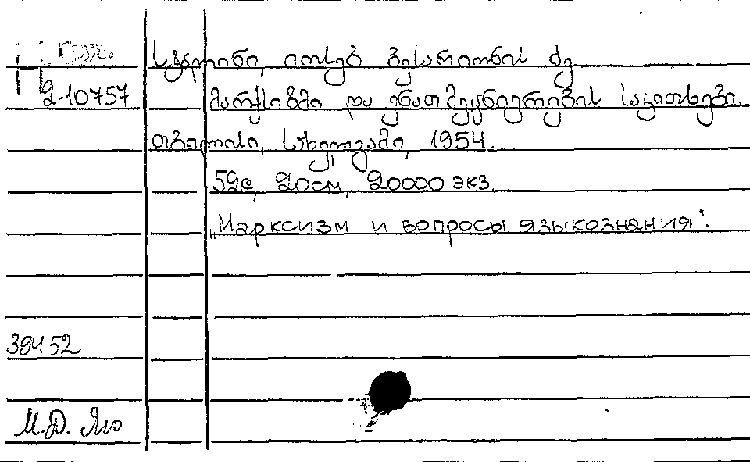 სტალინი, იოსებ ბესარიონის ძე
2-10757 მარქსიზმი და ენათმეცნიერების საკითხები.
თბილისი, სახელგამი, 1954.
52с. 20см. 20000 экз.
„Марксизм и вопросы языкознания".
39452
М.Д.